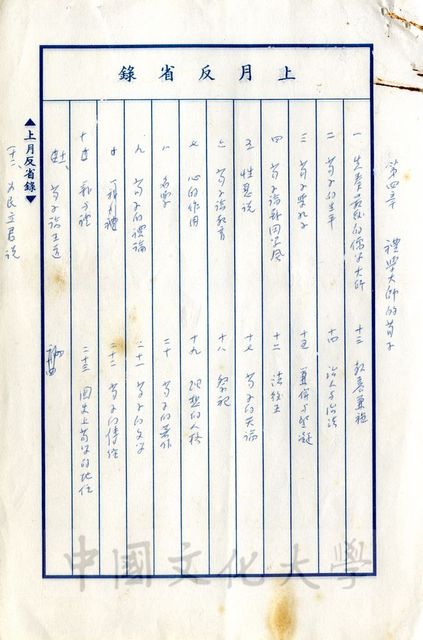 上月反省錄
第四章 禮學大師的荀子
一 先秦最後的儒學大師
二 荀子的生平
三 荀子與孔子
四 荀子論新同學風
五 性惡說
六 荀子論教育
七 心的作用
八 名學
九 荀子的禮論
十
十一 荀子論王道
十二 為民立君說
十三 教養兼施
十四 治人與治法
十五
十六 法後王
十七 荀子的天論
十八 祭祀
十九 理想的人格
二十 荀子的著作
二十一 荀子的文學
二十二 荀子的傳經
二十三 國史上荀學的地位
▲上月反省錄▼
中國文化大學